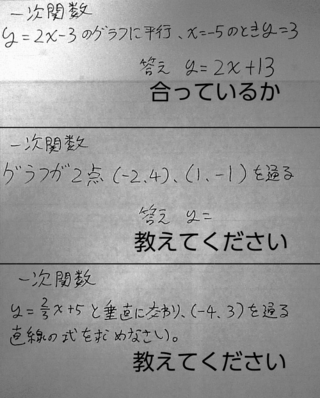 一次関数
y=2x-3のグラフに平行、x=-5のときy=3
答え y=2x+13
合っているか
一次関数
グラフが2点(-2,4)、(1,-1)を通る
答え y=
教えてください
一次関数
y=2/3x+5と垂直に交わり、(-4,3)を通る
直線の式を求めなさい。
教えてください